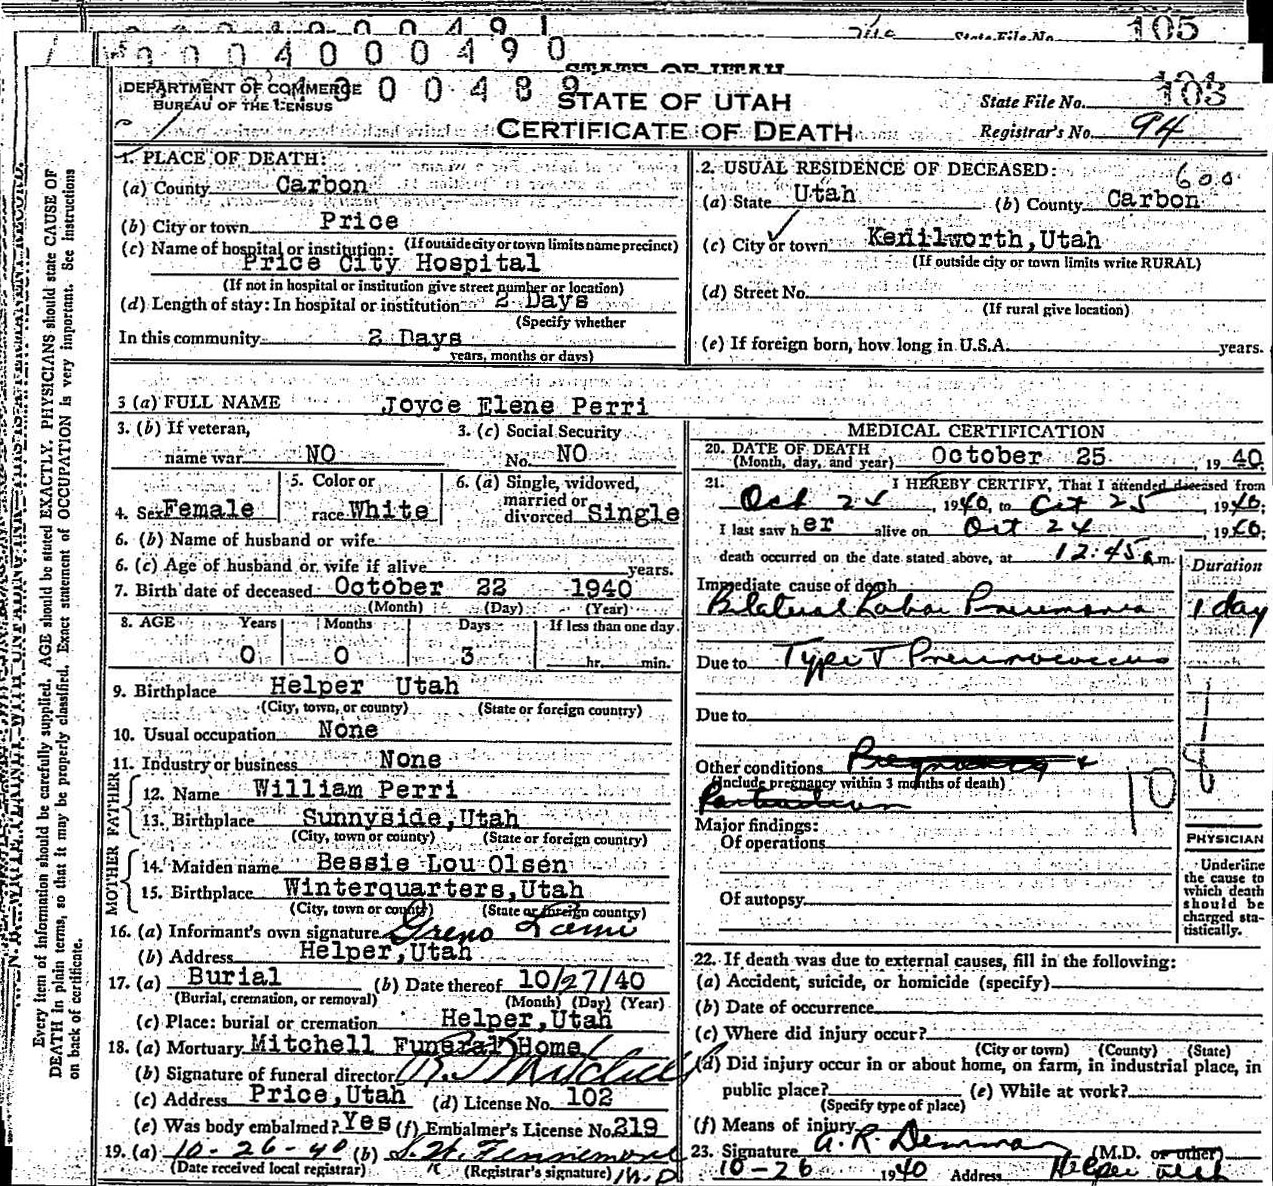 0 0 0 4 0 0 0 4 9 1
State File No. 105
0 0 0 4 0 0 0 4 9 0
STATE OF UTAH
104
DEPARTMENT OF COMMERCE
BUREAU OF THE CENSUS
0 0 4 8 9
STATE OF UTAH
CERTIFICATE OF DEATH
State File No. 103
Registrar's No. 94
1. PLACE OF DEATH:
(a) County Carbon
(b) City or town Price
(If outside city or town limits name precinct)
(c) Name of hospital or institution:
Price City Hospital
(If not in hospital or institution give street number or location)
(d) Length of stay: In hospital or institution 2 Days
(Specify whether
In this community 2 Days
years, months or days)
2. USUAL RESIDENCE OF DECEASED:
600
(a) State Utah (b) County Carbon
(c) City or town Kenilworth, Utah
(If outside city or town limits write RURAL)
(d) Street No.
(If rural give location)
(e) If foreign born, how long in U.S.A. years.
3 (a) FULL NAME Joyce Elene Perri
3. (b) If veteran,
name war NO
3. (c) Social Security
No. NO
4. Sex Female
5. Color or
race White
6. (a) Single, widowed,
married or
divorced Single
6. (b) Name of husband or wife
6. (c) Age of husband or wife if alive years.
7. Birth date of deceased October 22 1940
(Month) (Day) (Year)
8. AGE Years Months Days If less than one day
0 0 3 hr. min.
9. Birthplace Helper Utah
(City, town, or county) (State or foreign country)
10. Usual occupation None
11. Industry or business None
FATHER
12. Name William Perri
13. Birthplace Sunnyside, Utah
(City, town or county) (State or foreign country)
MOTHER
14. Maiden name Bessie Lou Olsen
15. Birthplace Winterquarters, Utah
(City, town or county) (State or foreign country)
16. (a) Informant's own signature
(b) Address Helper, Utah
17. (a) Burial (b) Date thereof 10/27/40
(Burial, cremation, or removal) (Month) (Day) (Year)
(c) Place: burial or cremation Helper, Utah
18. (a) Mortuary Mitchell Funeral Home
(b) Signature of funeral director Mitchell
(c) Address Price, Utah (d) License No. 102
(e) Was body embalmed? Yes (f) Embalmer's License No. 219
19. (a) 10-26-40 (b)
(Date received local registrar) (Registrar's signature) M.D.
MEDICAL CERTIFICATION
20. DATE OF DEATH
(Month, day, and year) October 25, 1940.
21. I HEREBY CERTIFY, That I attended deceased from
Oct 24, 1940, to Oct 25, 1940;
I last saw her alive on Oct 24, 1940;
death occurred on the date stated above, at 12:45 a.m.
Duration
Immediate cause of death
Bilateral Lobar Pneumonia 1 day
Due to Type V Pneumococcus
Due to
Other conditions Pregnancy +
(Include pregnancy within 3 months of death)
108
Major findings:
Of operations
Of autopsy
PHYSICIAN
Underline
the cause to
which death
should be
charged sta-
tistically.
22. If death was due to external causes, fill in the following:
(a) Accident, suicide, or homicide (specify)
(b) Date of occurrence
(c) Where did injury occur?
(City or town) (County) (State)
(d) Did injury occur in or about home, on farm, in industrial place, in
public place? (e) While at work?
(Specify type of place)
(f) Means of injury
23. Signature A. R. Demman (M.D. or other)
10-26 1940 Address Helper Utah
Every item of information should be carefully supplied. AGE should be stated EXACTLY. PHYSICIANS should state CAUSE OF
DEATH in plain terms, so that it may be properly classified. Exact statement of OCCUPATION is very important. See instructions
on back of certificate.